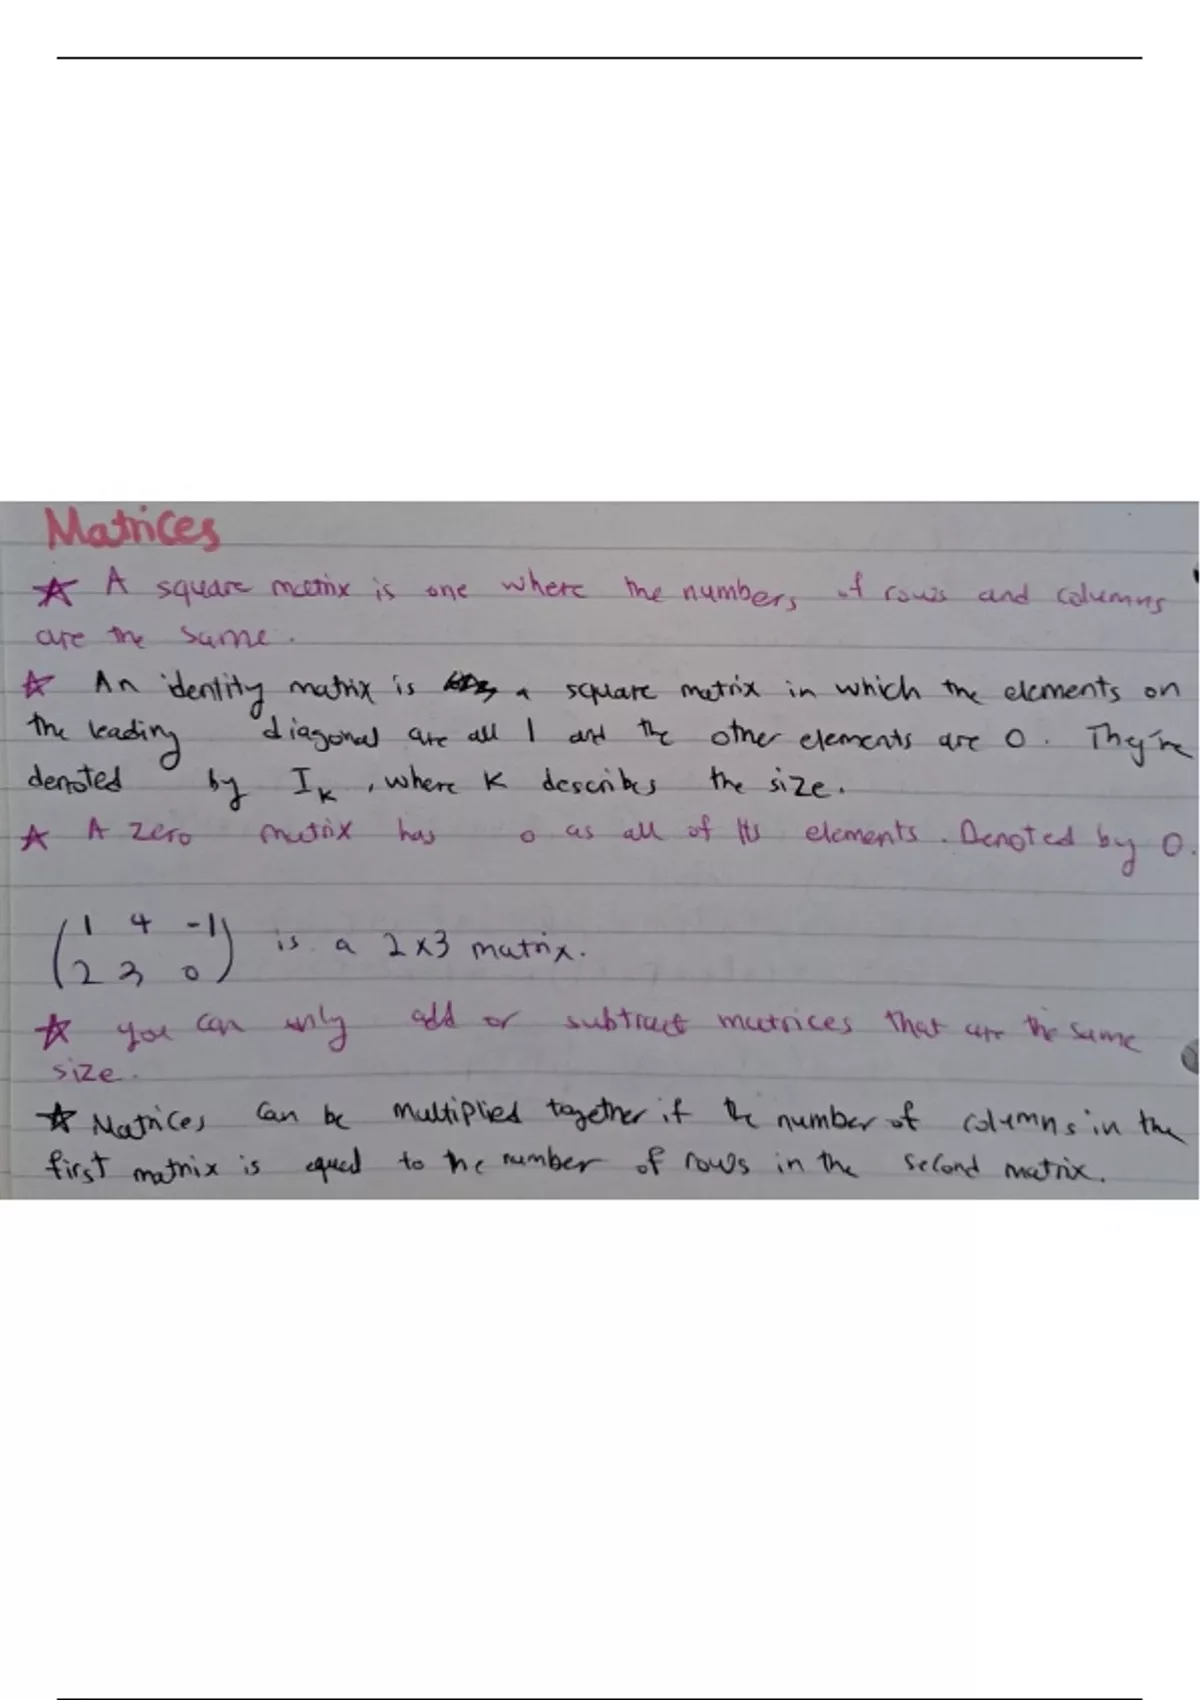 Matrices
☆ A square matrix is one where the numbers of rows and columns
are the same.
☆ An identity matrix is a square matrix in which the elements on
the leading diagonal are all 1 and the other elements are 0. They're
denoted by I_K, where K describes the size.
☆ A zero matrix has 0 as all of its elements. Denoted by 0.
(1 4 -1
2 3 0) is a 2x3 matrix.
☆ you can only add or subtract matrices that are the same
size.
☆ Matrices can be multiplied together if the number of columns in the
first matrix is equal to the number of rows in the second matrix.